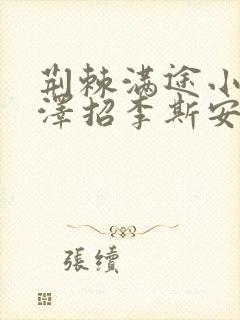 荆棘满途小
澤招李斯安
張續